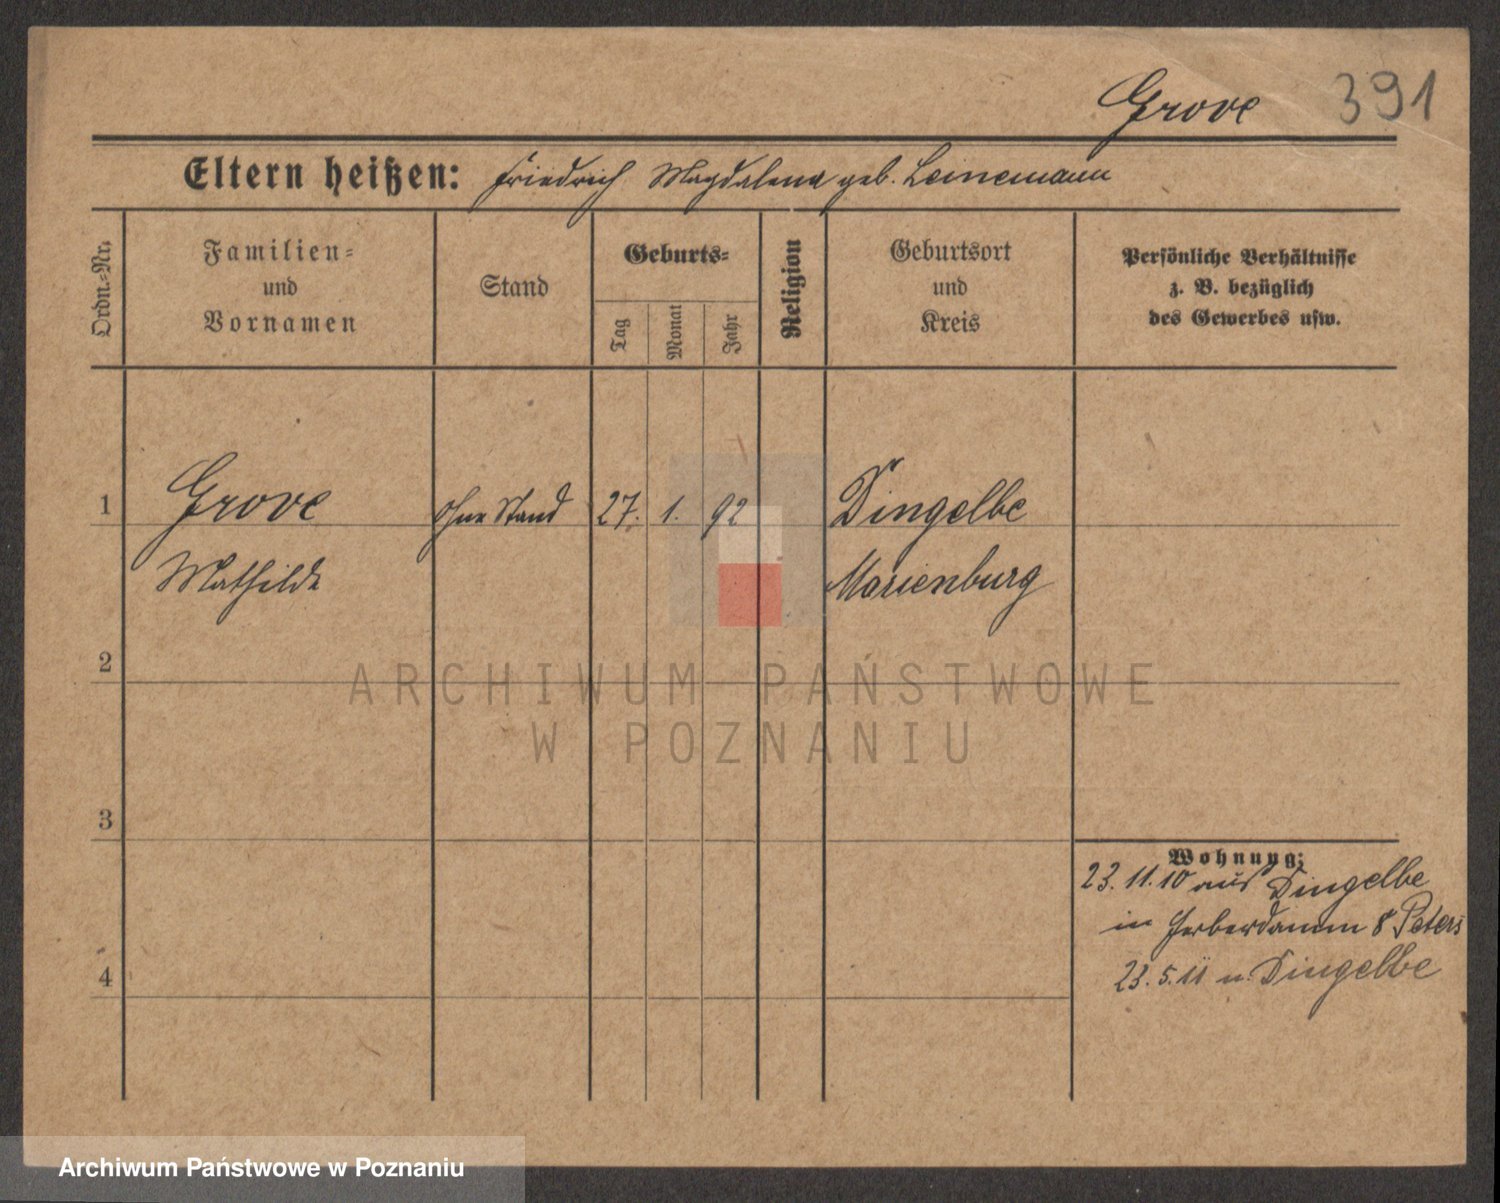 Grove 391
Eltern heißen: Friedrich Magdalena geb. Leinemann
Ordn.-Nr.
Familien-
und
Vornamen
Stand
Geburts-
Tag
Monat
Jahr
Religion
Geburtsort
und
Kreis
Persönliche Verhältnisse
z. B. bezüglich
des Gewerbes usw.
1 Grove ohne Stand 27. 1. 92 Dingelbe
Mathilde Marienburg
2
ARCHIWUM PAŃSTWOWE
W POZNANIU
3
Wohnung:
23. 11. 10 aus Dingelbe
in Gerberdamm 8 Peters
4
23. 5. 11 n. Dingelbe
Archiwum Państwowe w Poznaniu